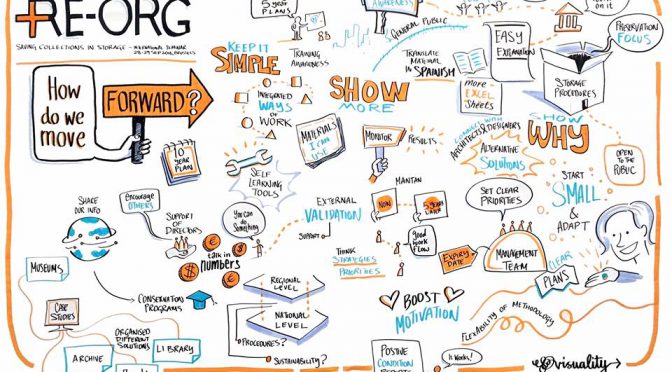 RE-ORG
SAVING COLLECTIONS IN STORAGE - INTERNATIONAL SEMINAR
5 YEAR PLANS
AWARENESS
GENERAL PUBLIC
on it
PRESERVATION
FOCUS
How
do we
move
FORWARD?
10
YEAR
PLAN
KEEP IT
SIMPLE
TRAINING
AWARENESS
INTEGRATED
WAYS
OF
WORK
SHOW
MORE
TRANSLATE
MATERIAL
IN SPANISH
EASY
EXPLANATION
more
EXCEL
Sheets
STORAGE
PROCEDURES
MATERIALS
I CAN
USE
MONITOR
RESULTS
CONNECT WITH
ARCHITECTS & DESIGNERS
ALTERNATIVE
SOLUTIONS
SHOW
WHY
OPEN
TO THE
PUBLIC
SELF
LEARNING
TOOLS
START
SMALL
&
ADAPT
SHARE
OUR INFO
Encourage
OTHERS
SUPPORT
OF
DIRECTORS
You can
do
Something
talk in
numbers
EXTERNAL
VALIDATION
SUPPORT
MANTAN
NOW
5 YEARS
LATER
Good
work
Flow
THINK
STRATEGIES
PRIORITIES
SET CLEAR
PRIORITIES
EXPIRY
DATE
MANAGEMENT
TEAM
CLEAR
PLANS
MUSEUMS
CASE
STUDIES
CONSERVATION
PROGRAMS
ORGANISED
DIFFERENT
SOLUTIONS
ARCHIVE
LIBRARY
REGIONAL
LEVEL
NATIONAL
LEVEL
PROCEDURES?
SUSTAINABILITY?
BOOST
MOTIVATION
FLEXIBILITY OF METHODOLOGY
POSITIVE
CONDITION
REPORTS
It Works!
visuality